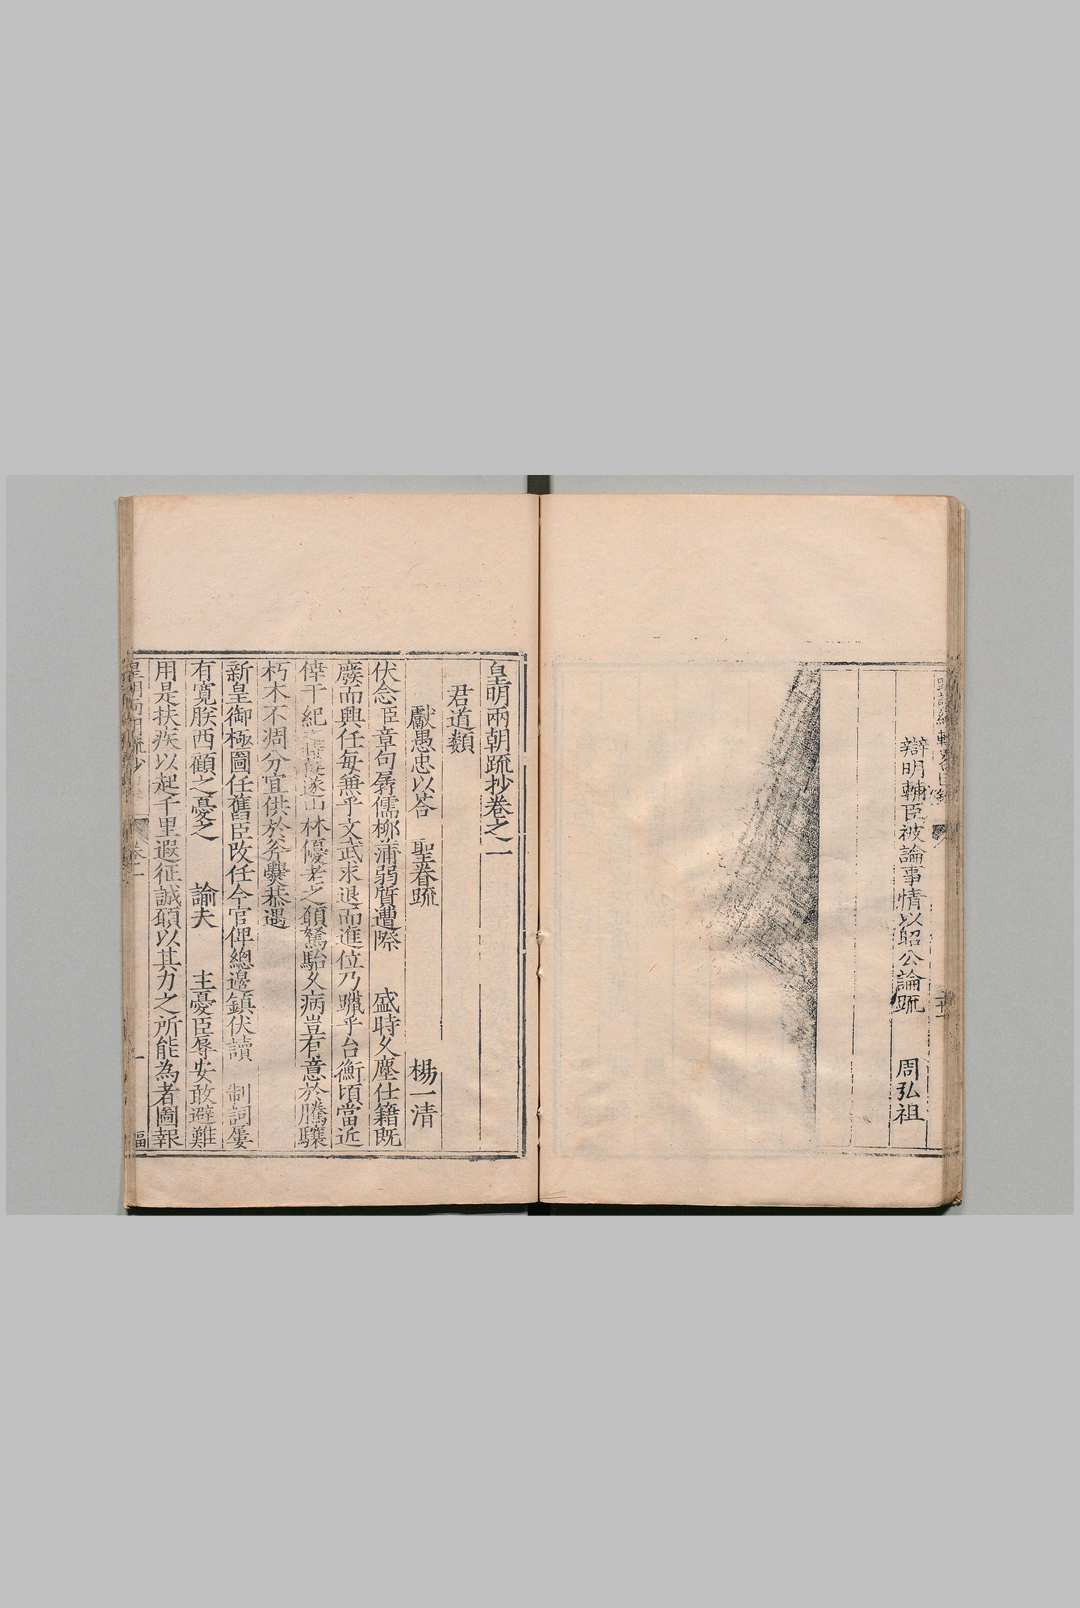 辯明輔臣被論事情以昭公論疏　周弘祖
皇明兩朝疏抄卷之一
君道類
獻愚忠以答　聖眷疏　楊一清
伏念臣章句孱儒栁蒲弱質遭際　盛時久塵仕籍旣
廢而興任每兼乎文武求退而進位乃躐乎台衡頃當近
倖干紀遂山林優老之願駑駘久病豈有意於騰驤
朽木不凋分宜供於爨恭遇
新皇御極圖任舊臣改任今官俾總邊鎮伏讀　制詞屡
有寬朕西顧之憂之　諭夫　主憂臣辱安敢避難
用是扶疾以起千里遐征誠願以其力之所能為者圖報